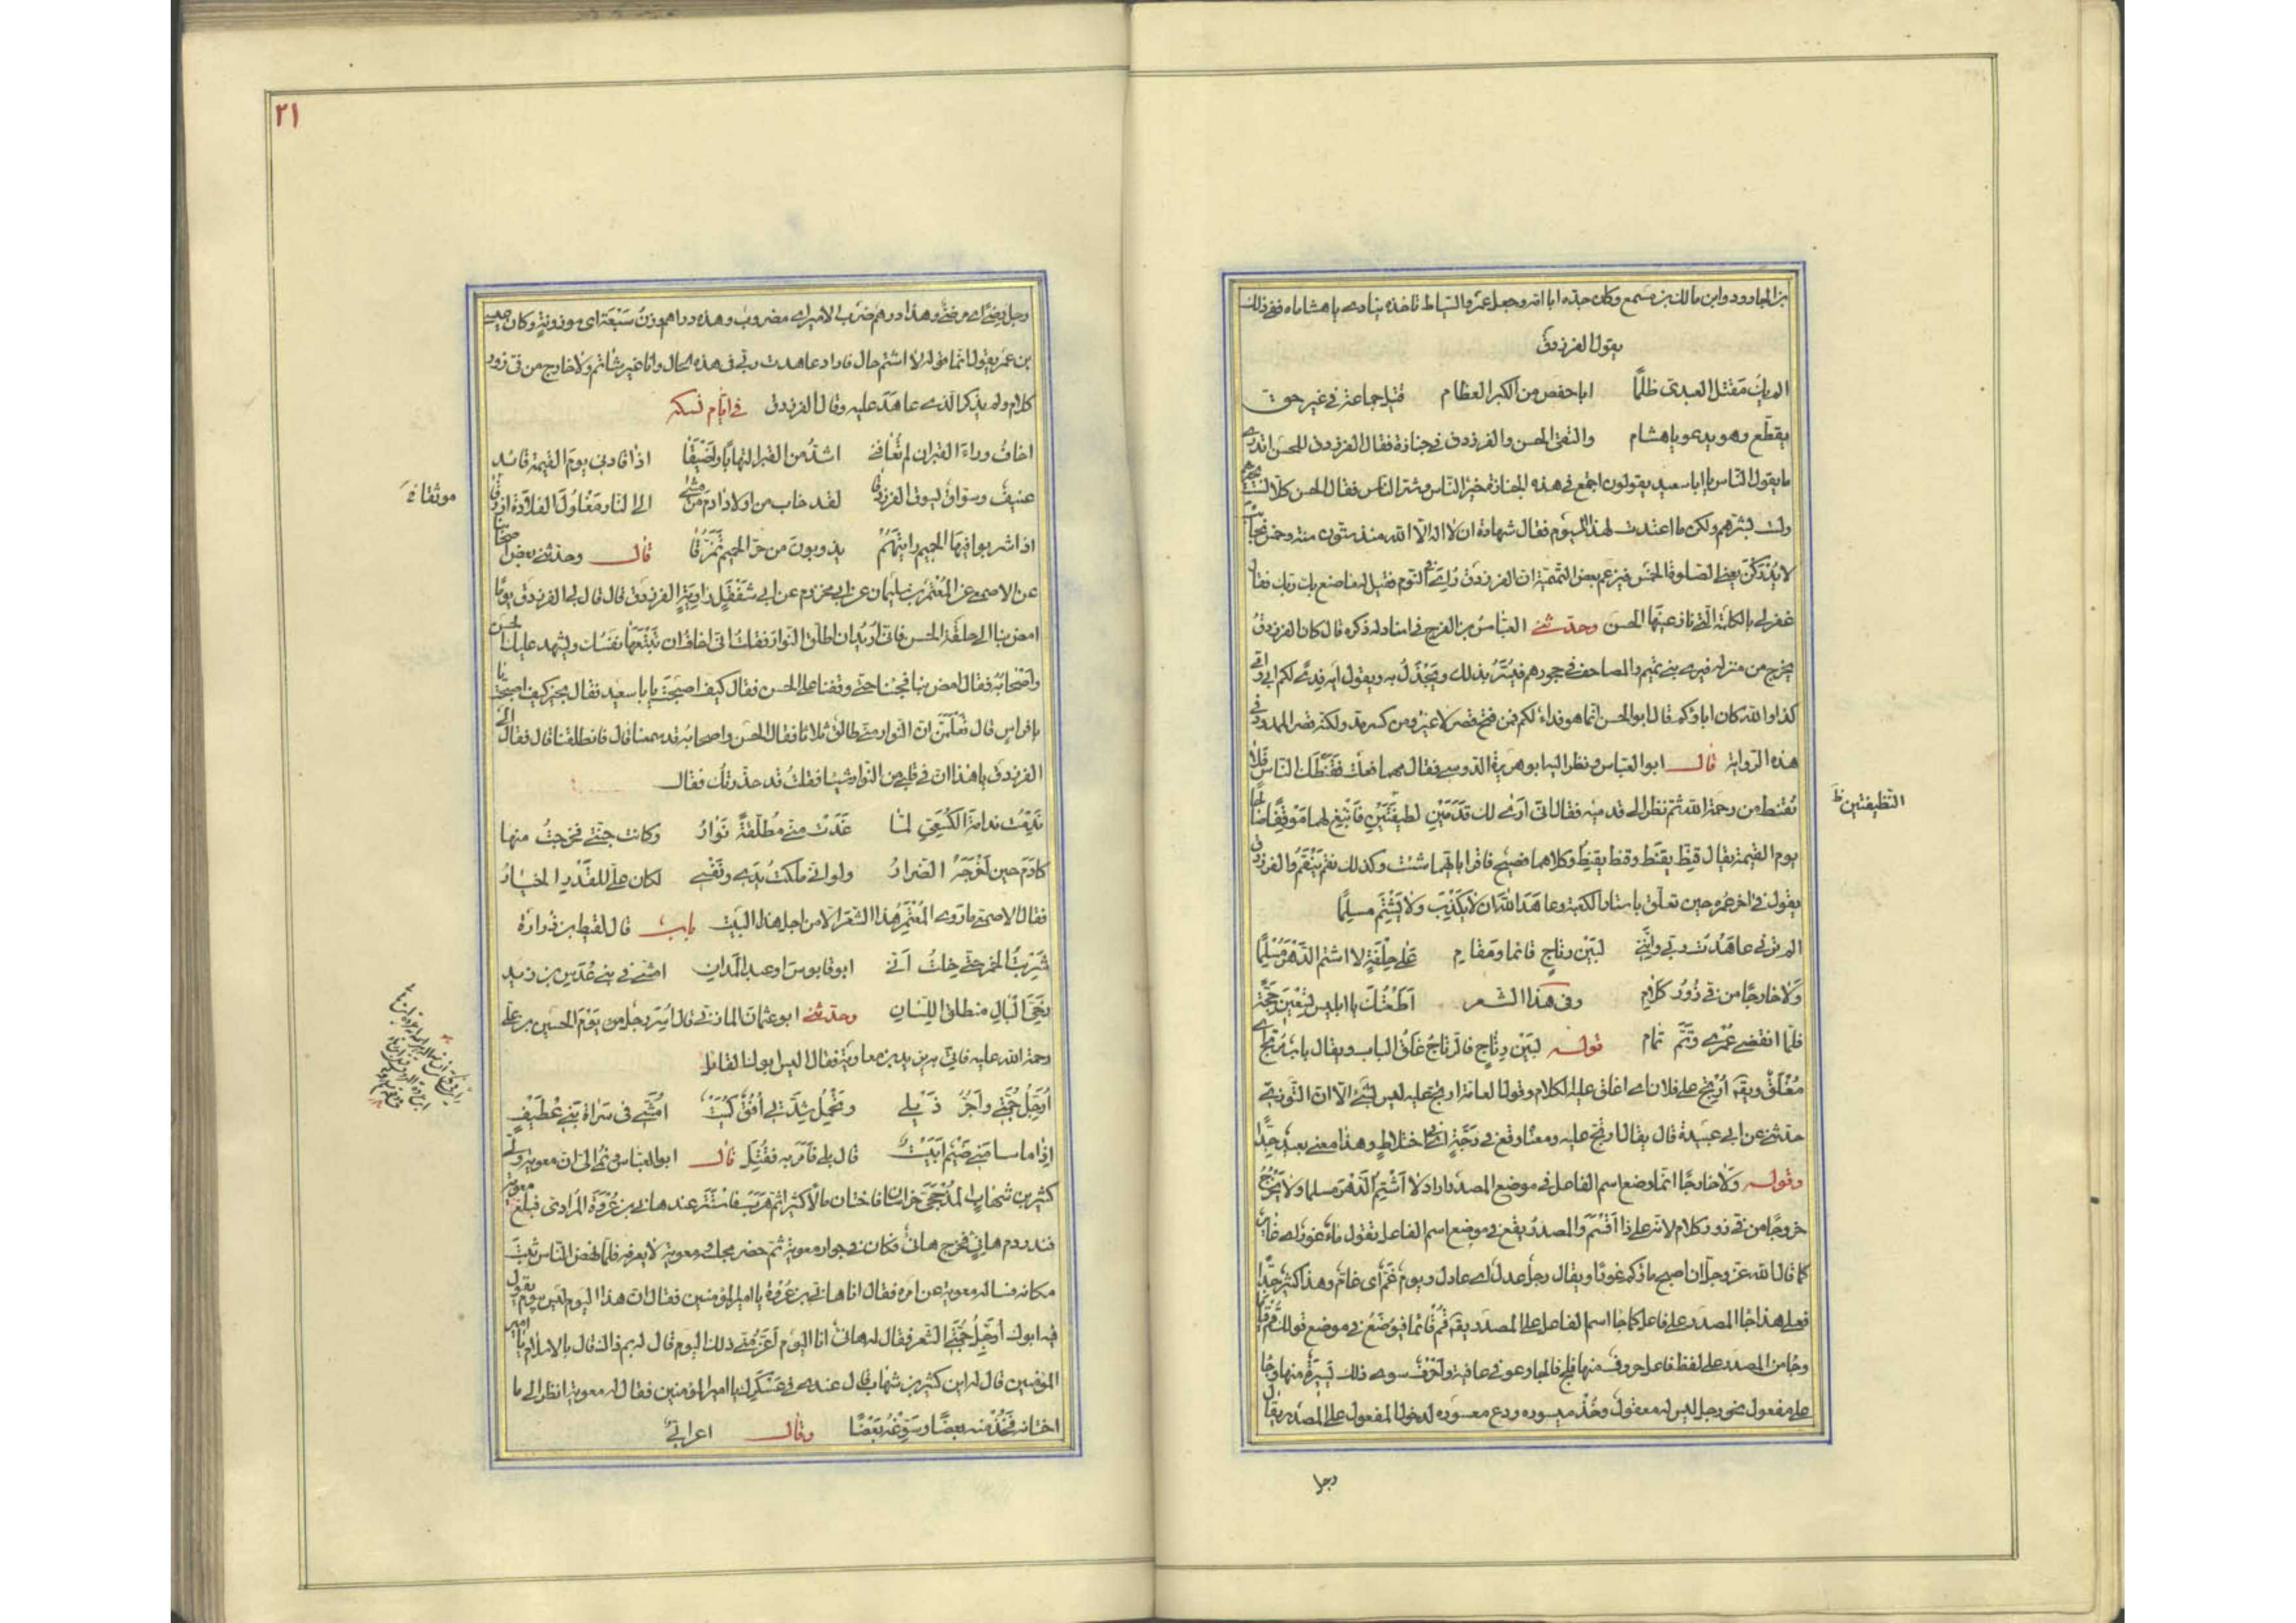 بن الجارود وابن مالك بن مسمع وكان جده ابا امه وجعل عمر والسياط تاخذه ينادى يا هشاماه ففى ذلك
يقول الفرزدق
الم يك مقتل العبدى ظلمًا ابا حفص من الكبر العظام قتيل جماعة فى غير حق
يقطع وهو يدعو يا هشام والتقى الحسن والفرزدق فى جنازة فقال الفرزدق للحسن اتدرى
ما يقول الناس يا ابا سعيد يقولون اجتمع فى هذه الجنازة خير الناس وشر الناس فقال الحسن كلا لست بخيرهم
ولست بشرهم ولكن ما اعتددت لهذا اليوم فقال شهادة ان لا اله الا الله منذ ستون سنة وخمس نجائب
لا يُدْرَكْنَ يعنى الصلوة الخمس فيزعم بعض التميمية ان الفرزدق رُاِىَ فى النوم فقيل له ما صنع بك ربك فقال
غفر لى بالكلمة التى نازعنيها الحسن وحدثنى العباس بن الفرج فى اسناد له ذكره قال كان الفرزدق
يخرج من منزله فيرى بنى تميم والمصاحف فى حجورهم فيُسَرُّ بذلك ويَجْذَلُ به ويقول ايه فِدًى لكم ابى وامى
كذا والله كان اباؤكم قال ابو الحسن انما هو فداء لكم فمن فتح قصر لا غير ومن كسر مد ولكنه قصر الممدود فى
هذه الرواية قال ابو العباس ونظر اليه ابو هريرة الدوسى فقال مهما فعلت فقَنَّطَك الناس فلا
تقنط من رحمة الله ثم نظر الى قدميه فقال انى ارى لك قَدَمَيْنِ لطيفتين فابْتَغِ لهما مَوْقِفًا صالحًا
يوم القيمة يقال قَنِطَ يَقْنَط وقنَط يقنِط وكلاهما فصيح فاقرا بايهما شئت وكذلك نقم يَنْقِمُ والفرزدق
يقول فى اخر عمره حين تعلق باستار الكعبة وعاهد الله ان لا يكذب ولا يشتم مسلمًا
الم ترنى عاهدت ربى وانّنى لبَيْن رِتاج قائما ومقام على حلفة لا اشتم الدهر مسلمًا
ولا خارجًا من فِىَّ زور كلام وفى هذا الشعر اطعتك يا ابليس تسعين حجة
فلما انقضى عمرى وتم تمام قوله لبين رتاج فالرتاج غلق الباب ويقال باب مُرتَج اى
مُغْلَقٌ ويق اُرْتِجَ على فلان اى اغلق عليه الكلام وقول العامة ارتج عليه ليس بشئ الا ان التوزى
حدثنى عن ابى عبيدة قال يقال ارتج عليه ومعناه وقع فى رَجَّةٍ اى فى اختلاط وهذا معنى بعيد جدًّا
وقوله ولا خارجًا انما وضع اسم الفاعل فى موضع المصدر اراد لا اشتم الدهر مسلما ولا يخرج
خروجًا من فى زور كلام لانه على ذا اقسم والمصدر يقع فى موضع اسم الفاعل يقول ماء غور اى غائر
كما قال الله عز وجل ان اصبح ماؤكم غورًا ويقال رجل عدل اى عادل ويوم غم اى غام وهذا كثير جدًّا
فعلى هذا جاء المصدر على فاعل كما جاء اسم الفاعل على المصدر يق قم قائما فيوضع فى موضع قولك قم قياما
وجاء من المصدر على لفظ فاعل حروف منها فلج فالجا وعوفى عافية واحرف سوى ذلك يسيرة منها وجاء
على مفعول نحو رجل ليس له معقول وخذ ميسوره ودع معسوره لدخول المفعول على المصدر يقال
رجل
النظيفتين ظ
٢١
رجل رِضًى اى مرضى وهذا درهم ضرب الامير اى مضروب وهذه دراهم وزن سبعة اى موزونة وكان عيسى
بن عمر يقول انما قوله لا اشتم حال فاراد عاهدت ربى فى هذه الحال وانا غير شاتم ولا خارج من فى زور
كلام ولم يذكر الذى عاهد عليه وقال الفرزدق فى ايام نسكه
اخاف وراء القبر ان لم يعافنى اشد من القبر التهابًا واضيقا اذا قادنى يوم القيمة قائد
عنيف وسواق يسوق الفرزدقا لقد خاب من اولاد ادم من مشى الى النار مغلول القلادة ازرقا
اذا شربوا فيها الحميم رايتهم يذوبون من حر الحميم تمزقا قال وحدثنى بعض اصحابنا
عن الاصمعى عن المعتمر بن سليمان عن ابى مخزوم عن ابى شفقل راوية الفرزدق قال قال لى الفرزدق يومًا
امض بنا الى حلقة الحسن فانى اريد ان اطلق النوار فقلت انى اخاف ان تتبعها نفسك ويشهد عليك الحسن
واصحابه فقال امض بنا فجئنا حتى وقفنا على الحسن فقال كيف اصبحت يا با سعيد فقال بخير كيف اصبحت يا
با فراس قال تعلمن ان النوار منى طالق ثلاثا فقال الحسن واصحابه قد سمعنا قال فانطلقنا قال فقال لى
الفرزدق يا هذا ان فى قلبى من النوار شيئا فقلت قد حذرتك فقال
ندمت ندامة الكسعى لما غدت منى مطلقة نوار وكانت جنتى فخرجت منها
كادم حين اخرجه الضرار ولو انى ملكت يدى ونفسى لكان على للقدر الخيار
فقال الاصمعى ما روى المعتمر هذا الشعر الا من اجل هذا البيت باب قال لقيط بن زرارة
شربت الخمر حتى خلت انى ابو قابوس او عبد المدان امشى فى بنى عدس بن زيد
رخى البال منطلق اللسان وحدثنى ابو عثمان المازنى قال اسر رجل من يوم الحسين بن على
رحمة الله عليه فاتى به يزيد بن معاوية فقال اليس ابوك القائل
ارجل جمتى واجر ذيلى وتحمل شكتى افق كميت امشى فى سراة بنى غطيف
اذا ما سامنى ضيم ابيت قال بلى فامر به فقتل قال ابو العباس ونمى الى ان معوية ولى
كثير بن شهاب المذحجى خراسان فاختان مالا كثيرا ثم هرب فاستتر عند هانى بن عروة المرادى فبلغ معوية
فندر دم هانئ فخرج هانئ فكان فى جوار معوية ثم حضر مجلسه ومعوية لا يعرفه فلما نهض الناس ثبت
مكانه فساله معوية عن امره فقال انا هانى بن عروة يا امير المؤمنين فقال ان هذا اليوم ليس بيوم يقول
فيه ابوك ارجل جمتى الشعر فقال له هانئ انا اليوم اعز منى ذلك اليوم قال له بم ذاك قال بالاسلام يا امير
المؤمنين قال له اين كثير بن شهاب قال عندى فى عسكرك يا امير المؤمنين فقال له معوية انظر الى ما
اختانه فخذ منه بعضًا وسوغه بعضًا وقال اعرابى
موثقا خ